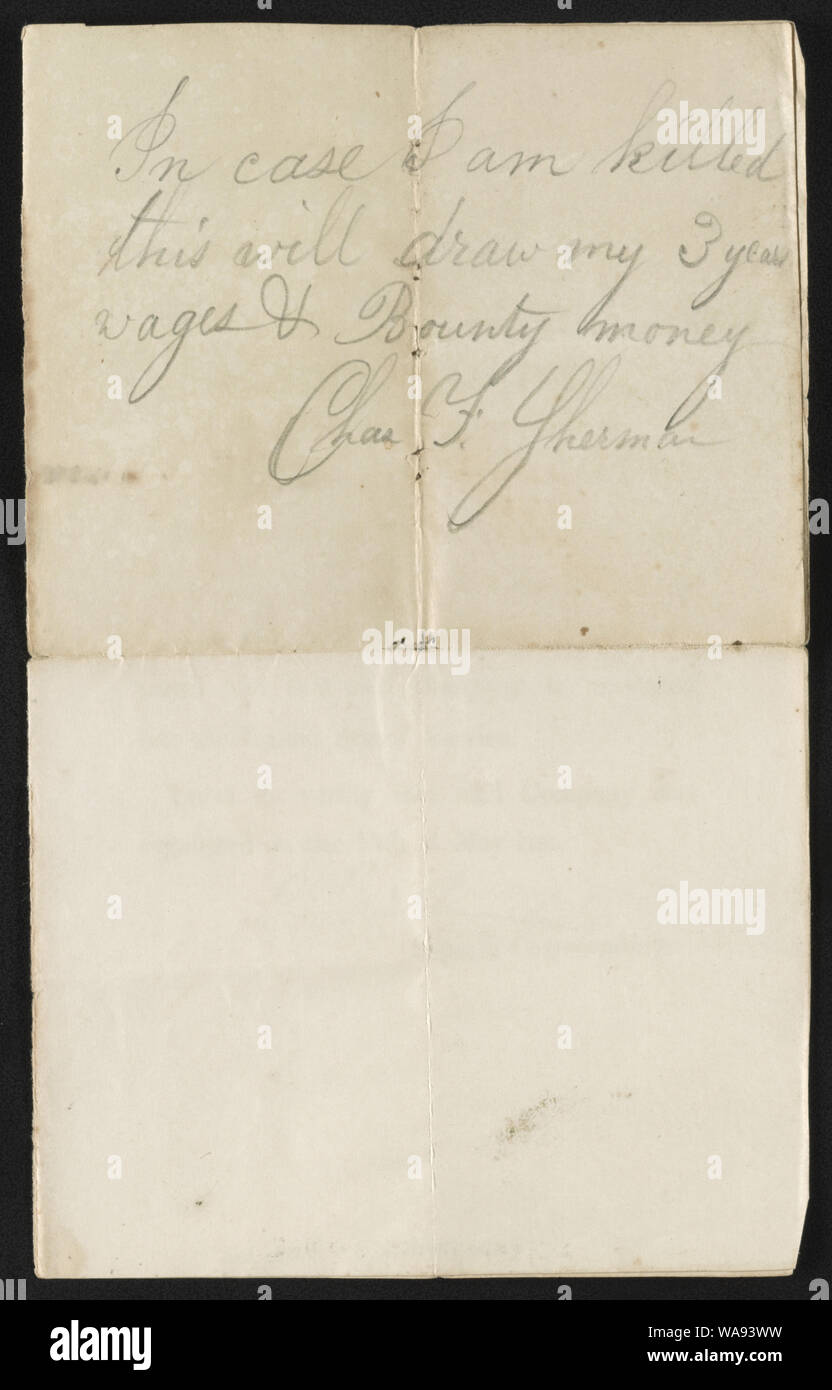 In case I am killed
this will draw my 3 years
wages & Bounty money
Chas F. Sherman
alamy
Image ID: WA93WW
www.alamy.com